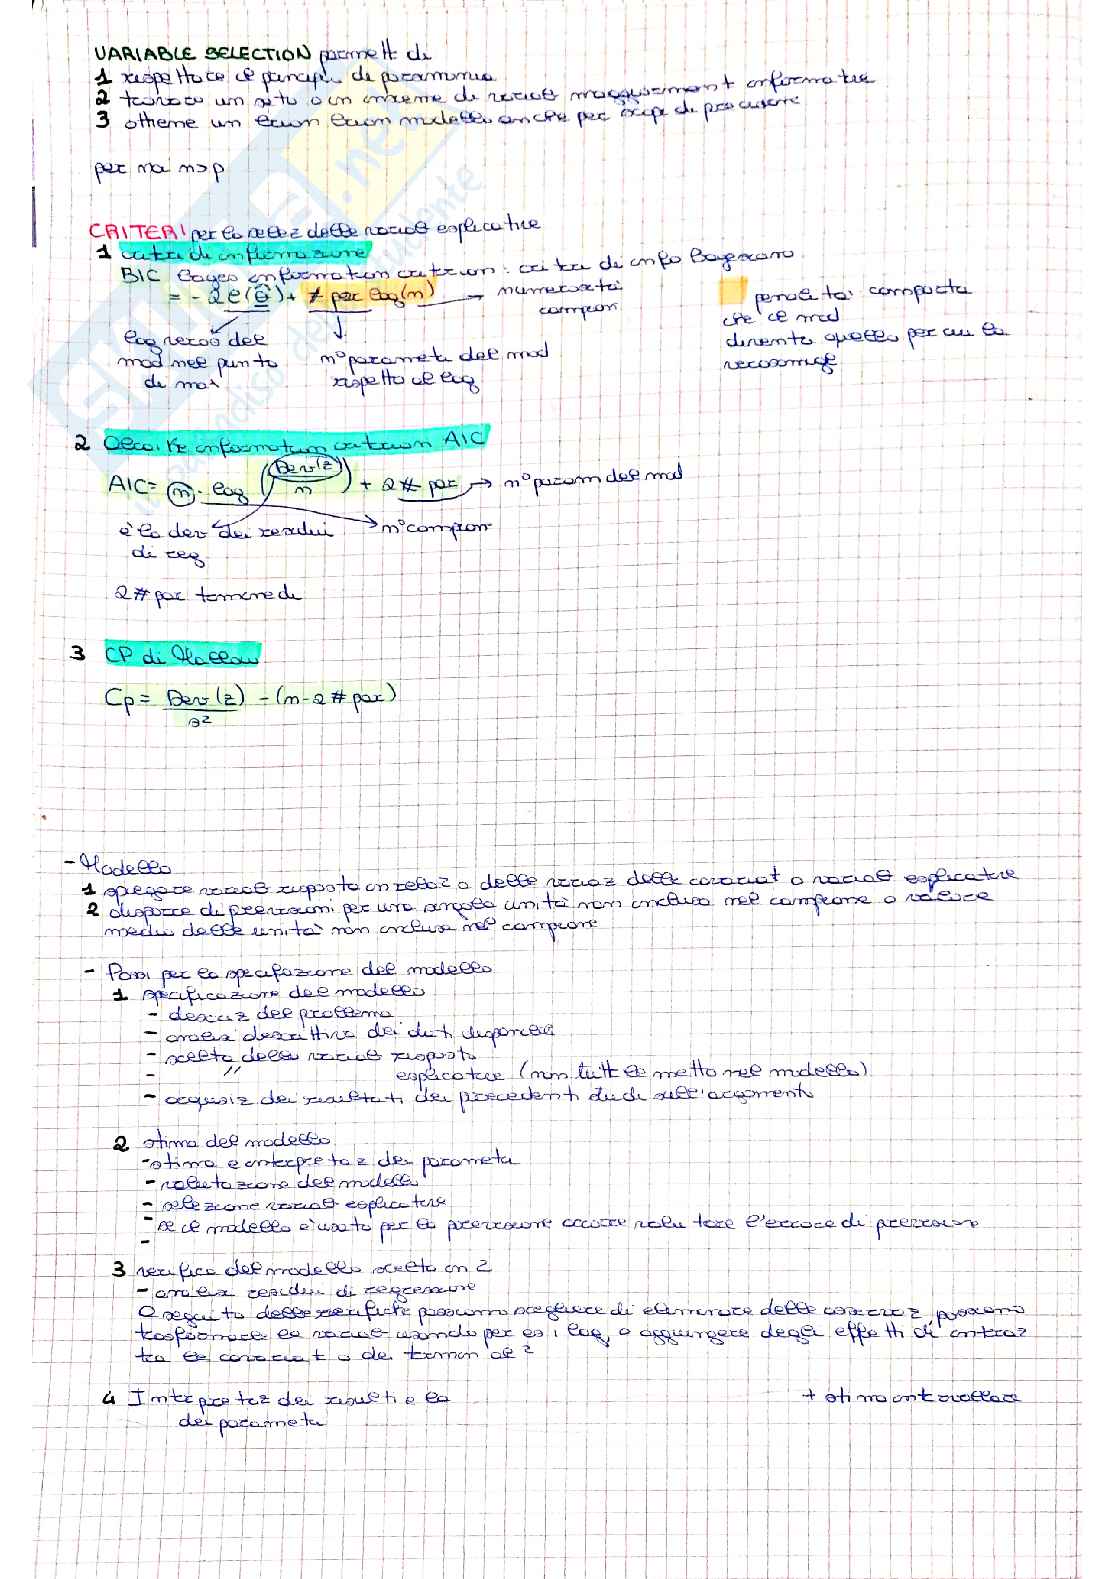 VARIABLE SELECTION permette di
1 rispettare il principio di parsimonia
2 trovare un sito o un insieme di variabili maggiormente informative
3 ottenere un buon modello anche per scopi di previsione
per noi n>p
CRITERI per la scelta delle variabili esplicative
1 criteri di informazione
BIC Bayes information criterion: criteri di info Bayesiano
= -2ℓ(θ̂) + # par log(n) → numerosità campion
log veros del mod nel punto di max
n° parametri del mod rispetto al log
penalità: comporta che il mod diventa quello per cui la
2 Akaike information criterion AIC
AIC = n · log (Dev(z)/n) + 2 # par → n° param del mod
è la dev dei residui di reg.
n° campion
2 # par
3 CP di Mallow
Cp = Dev(z)/s² - (n-2 # par)
- Modello
1 spiegare variab risposta in relaz a delle variaz delle covariat o variab esplicative
2 disporre di previsioni per una singola unità non inclusa nel campione o valore
medio delle unità non incluse nel campione
- Passi per la specificazione del modello
1 specificazione del modello
- descriz del problema
- analisi descrittiva dei dati disponibili
- scelta della variab risposta
- " esplicative (non tutte le metto nel modello)
- acquisiz dei risultati dei precedenti studi sull'argomento
2 stima del modello
- stima e interpretaz dei parametri
- valutazione del modello
- selezione variab esplicative
- se il modello è usato per la previsione occorre valutare l'errore di previsione
-
3 verifica del modello scelto in 2
- analisi residui di regressione
A seguito delle verifiche possiamo scegliere di eliminare delle covariaz, possiamo
trasformare le variab usando per es i log, o aggiungere degli effetti di interaz
tra le covariat o dei termini al ²
4 Interpretaz dei risult e la
dei parametri
+ stima intervallare